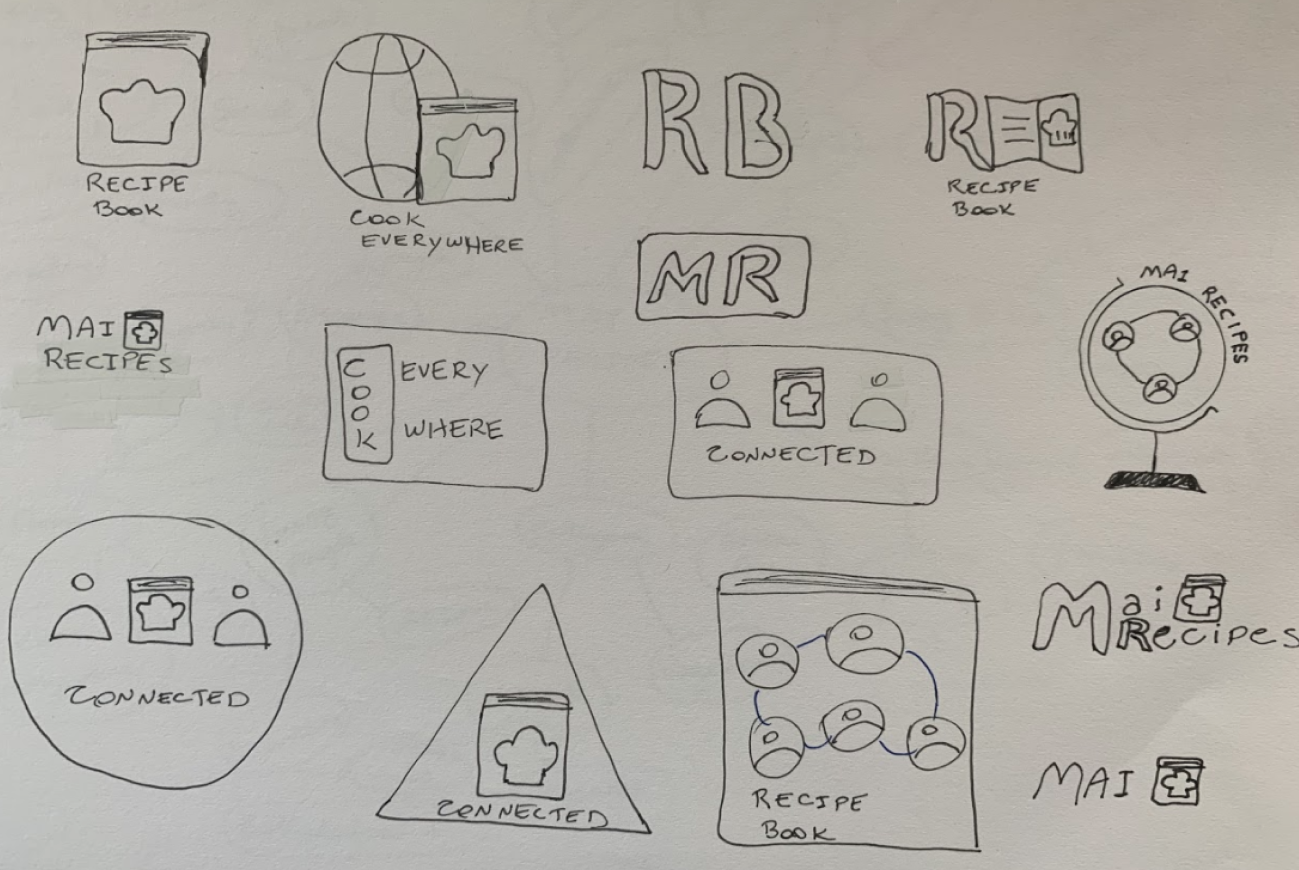 RECIPE
BOOK
COOK
EVERYWHERE
RB
R
RECIPE
BOOK
MAI
RECIPES
COOK
EVERY
WHERE
MR
CONNECTED
MAI RECIPES
CONNECTED
CONNECTED
RECIPE
BOOK
Mai
Recipes
MAI